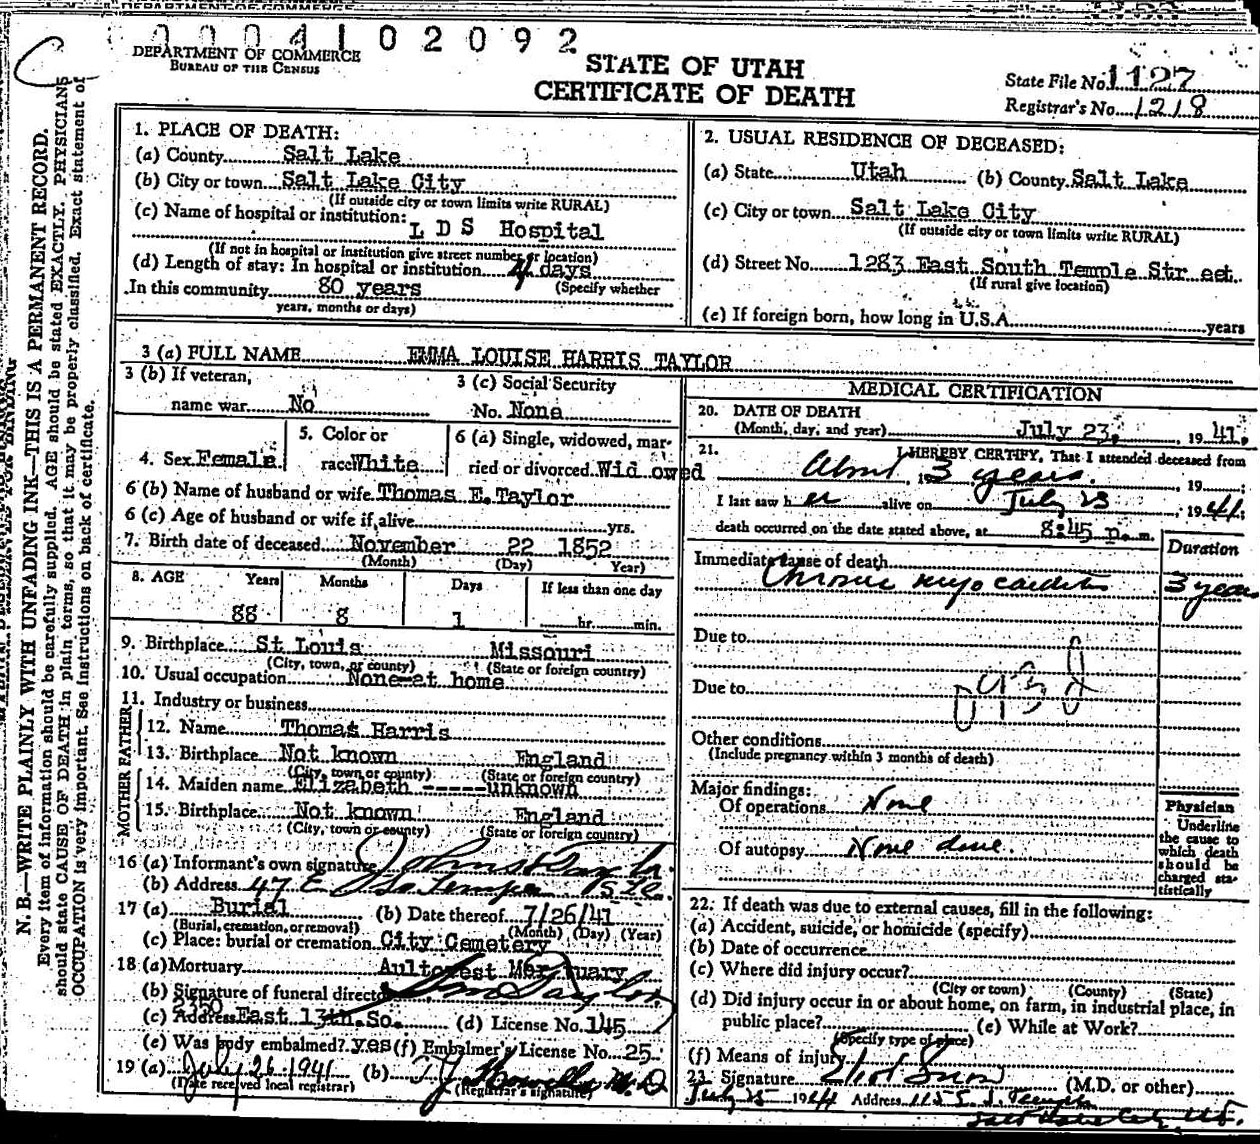 DEPARTMENT OF COMMERCE
0004102092
DEPARTMENT OF COMMERCE
BUREAU OF THE CENSUS
STATE OF UTAH
CERTIFICATE OF DEATH
State File No. 1127
Registrar's No. 1218
N. B.—WRITE PLAINLY WITH UNFADING INK—THIS IS A PERMANENT RECORD.
Every item of information should be carefully supplied. AGE should be stated EXACTLY. PHYSICIANS
should state CAUSE OF DEATH in plain terms, so that it may be properly classified. Exact statement of
OCCUPATION is very important. See instructions on back of certificate.
1. PLACE OF DEATH:
(a) County Salt Lake
(b) City or town Salt Lake City
(If outside city or town limits write RURAL)
(c) Name of hospital or institution:
L D S Hospital
(If not in hospital or institution give street number or location)
(d) Length of stay: In hospital or institution 4 days
In this community 80 years (Specify whether
years, months or days)
2. USUAL RESIDENCE OF DECEASED:
(a) State Utah (b) County Salt Lake
(c) City or town Salt Lake City
(If outside city or town limits write RURAL)
(d) Street No. 1283 East South Temple Str eet
(If rural give location)
(e) If foreign born, how long in U.S.A. years
3 (a) FULL NAME EMMA LOUISE HARRIS TAYLOR
3 (b) If veteran,
name war No
3 (c) Social Security
No. None
4. Sex Female
5. Color or
race White
6 (a) Single, widowed, mar-
ried or divorced Wid owed
6 (b) Name of husband or wife Thomas E. Taylor
6 (c) Age of husband or wife if alive yrs.
7. Birth date of deceased November 22 1852
(Month) (Day) Year)
8. AGE Years Months Days If less than one day
88 8 1 hr. min.
9. Birthplace St Louis Missouri
(City, town, or county) (State or foreign country)
10. Usual occupation None-at home
11. Industry or business
FATHER
12. Name Thomas Harris
13. Birthplace Not known England
(City, town or county) (State or foreign country)
MOTHER
14. Maiden name Elizabeth -----unknown
15. Birthplace Not known England
(City, town or county) (State or foreign country)
16 (a) Informant's own signature
(b) Address 47 E So. Temple
17 (a) Burial (b) Date thereof 7/26/41
(Burial, cremation, or removal) (Month) (Day) (Year)
(c) Place: burial or cremation City Cemetery
18 (a) Mortuary Aultorest Mortuary
(b) Signature of funeral director Taylor
(c) Address East 13th. So. (d) License No. 145
(e) Was body embalmed? yes (f) Embalmer's License No. 25
19 (a) July 26 1941 (b) M.D
(Date received local registrar) (Registrar's signature)
MEDICAL CERTIFICATION
20. DATE OF DEATH
(Month, day, and year) July 23, 1941.
21. I HEREBY CERTIFY, That I attended deceased from
About 3 years. , 19 ;
I last saw h er alive on July 23 , 1941;
death occurred on the date stated above, at 8:45 p. m.
Duration
Immediate cause of death
Chronic myocarditis 3 years
Due to
Due to
93d
Other conditions
(Include pregnancy within 3 months of death)
Major findings:
Of operations None
Of autopsy None done.
Physician
Underline
the cause to
which death
should be
charged sta-
tistically
22. If death was due to external causes, fill in the following:
(a) Accident, suicide, or homicide (specify)
(b) Date of occurrence
(c) Where did injury occur?
(City or town) (County) (State)
(d) Did injury occur in or about home, on farm, in industrial place, in
public place? (e) While at Work?
(Specify type of place)
(f) Means of injury
23. Signature Eliot Snow (M.D. or other)
July 25 1941 Address 1155 S. Temple
Salt Lake City, Ut.